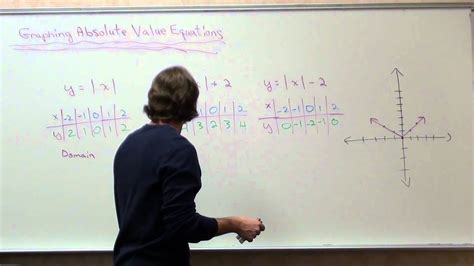 Graphing Absolute Value Equations
y = |x|
x -2 -1 0 1 2
y 2 1 0 1 2
Domain
| + 2
0 1 2
4 3 2 3 4
y = |x| - 2
x -2 -1 0 1 2
y 0 -1 -2 -1 0